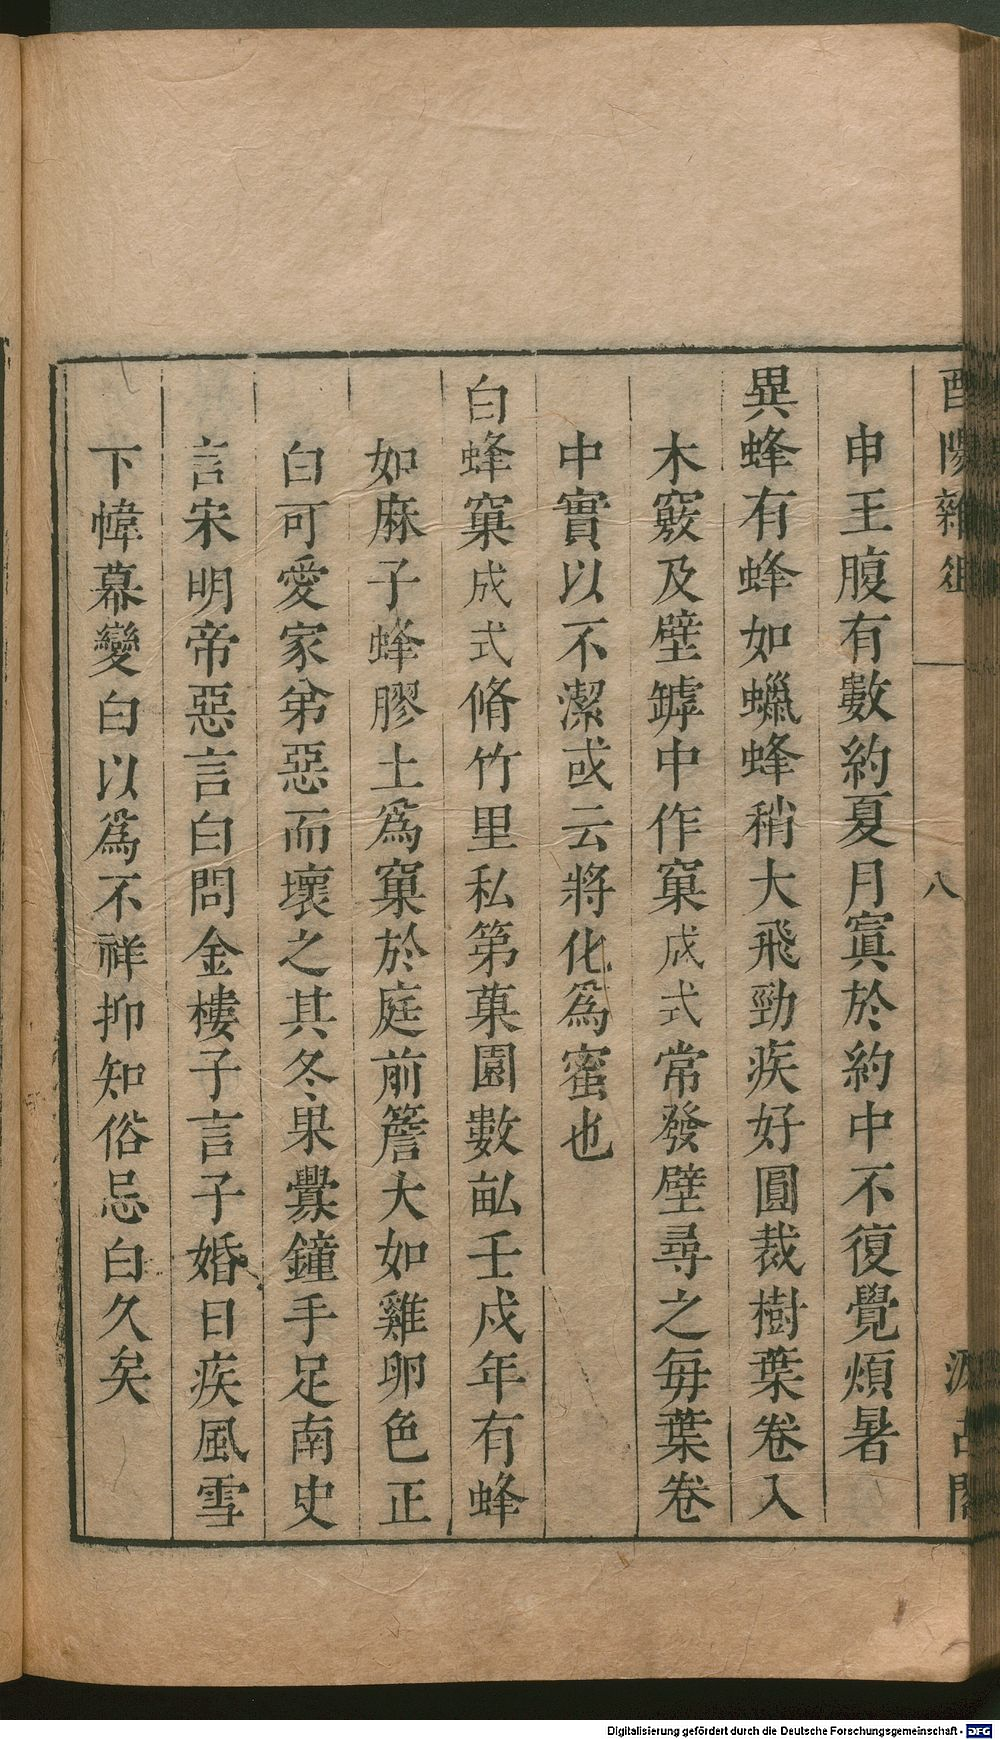 酉陽雜俎 八 汲古閣
申王腹有數約夏月寘於約中不復覺煩暑
異蜂有蜂如蠟蜂稍大飛勁疾好圓裁樹葉卷入
木竅及壁罅中作窠成式常發壁尋之每葉卷
中實以不潔或云將化為蜜也
白蜂窠成式脩竹里私第菓園數畝壬戌年有蜂
如麻子蜂膠土為窠於庭前簷大如雞卵色正
白可愛家弟惡而壞之其冬果釁鐘手足南史
言宋明帝惡言白問金樓子言子婚日疾風雪
下幃幕變白以為不祥抑知俗忌白久矣
Digitalisierung gefördert durch die Deutsche Forschungsgemeinschaft - DFG